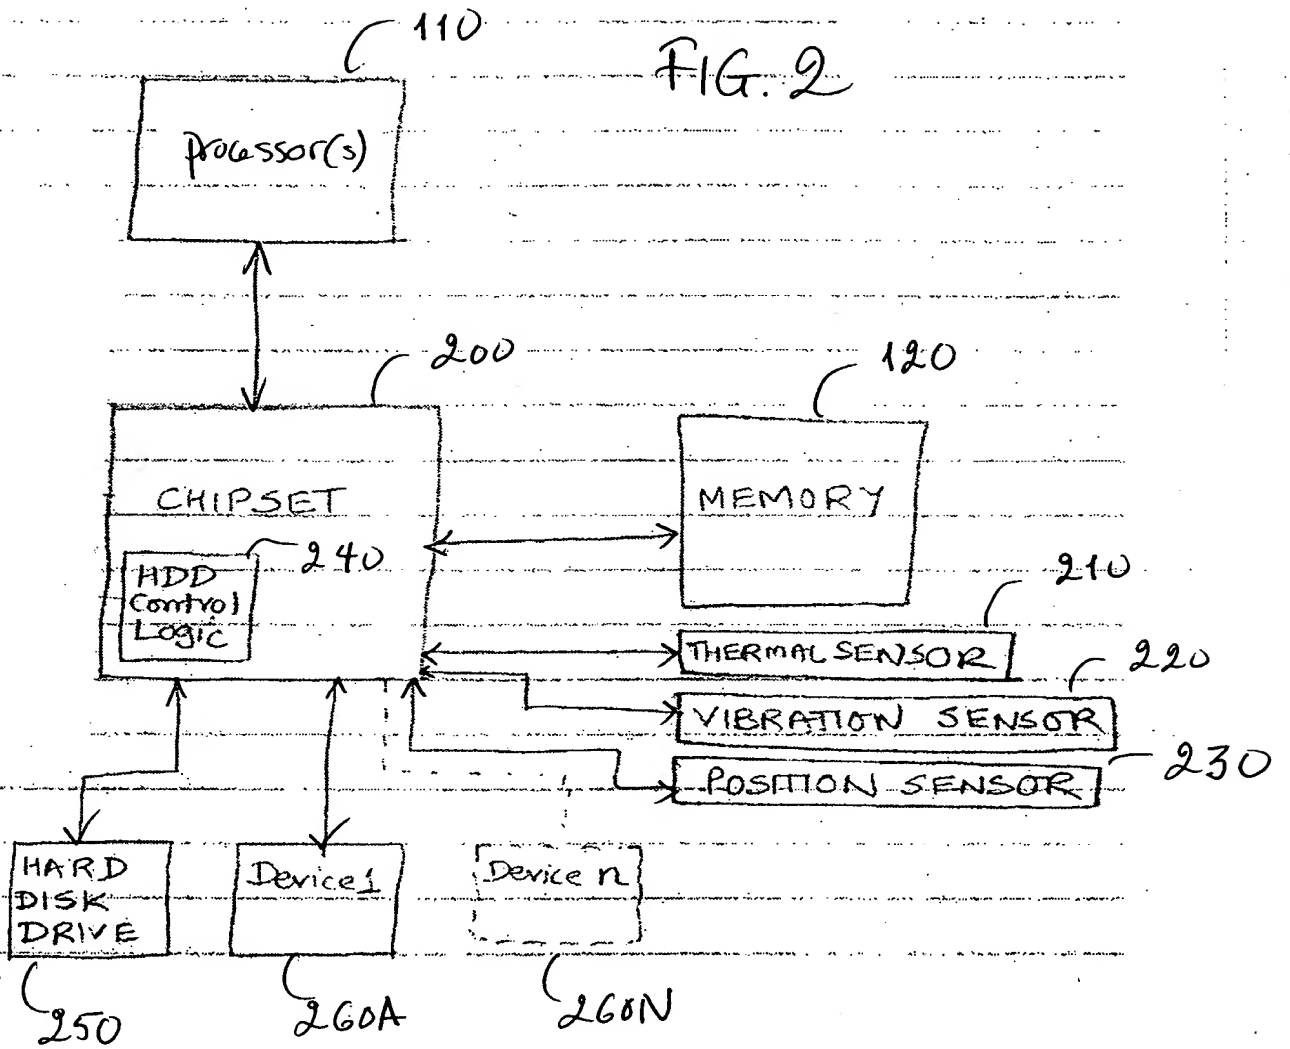 110
FIG. 2
processor(s)
200
120
CHIPSET
MEMORY
240
HDD
Control
Logic
210
THERMAL SENSOR
220
VIBRATION SENSOR
230
POSITION SENSOR
HARD
DISK
DRIVE
Device 1
Device n
250
260A
260N